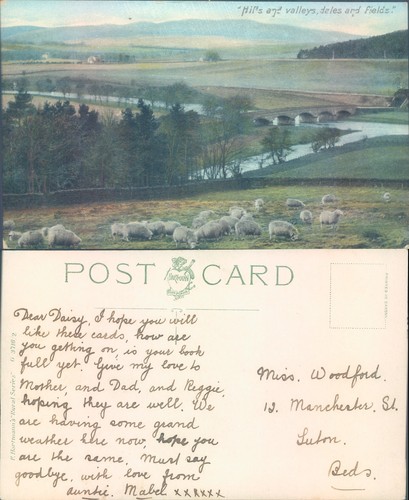 "Hills and valleys, dales and Fields."
POST CARD
Dear Daisy, I hope you will
like these cards, how are
you getting on, is your book
full yet. Give my love to
Mother, and Dad, and Reggie,
hoping they are well. We
are having some grand
weather here now, hope you
are the same. Must say
goodbye, with love from
auntie, Mabel xxxxxx
Miss. Woodford.
12. Manchester. St.
Luton.
Beds.